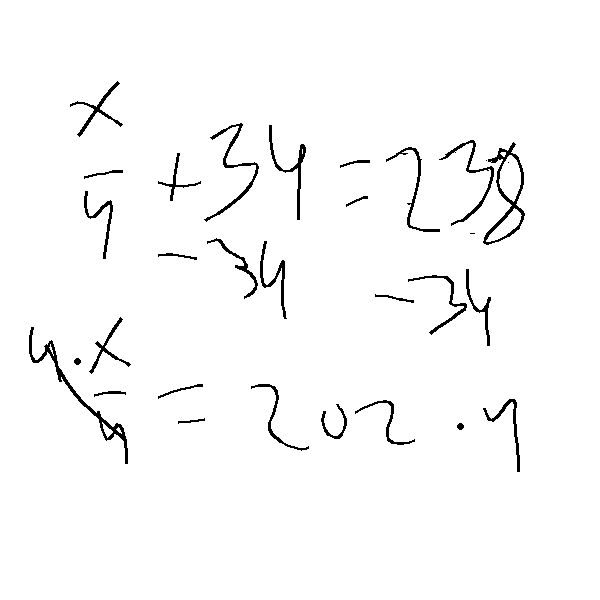 x/4 + 34 = 238
- 34 - 34
4 · x/4 = 202 · 4